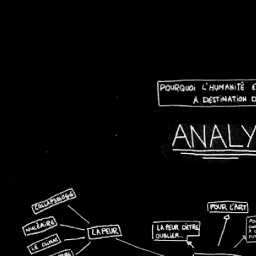 POURQUOI L'HUMANITÉ
A DESTINATION
ANALY
COLLAPSOLOGIE
NUCLÉAIRE
LE CLIMAT
LA PEUR
LA PEUR D'ÊTRE
OUBLIER...
POUR L'ART